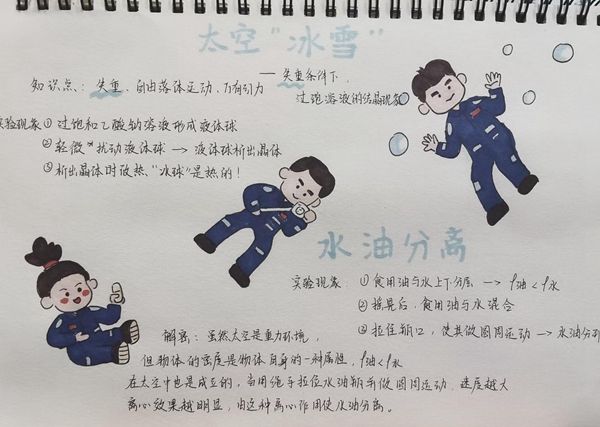 太空“冰雪”
——失重条件下
过饱溶液的结晶现象
知识点：失重、自由落体运动、万有引力
实验现象①过饱和乙酸钠溶液形成液体球
②轻微*扰动液体球→液体球析出晶体
③析出晶体时放热、“冰球”是热的！
水油分离
实验现象：①食用油与水上下分层→ρ油<ρ水
②摇晃后，食用油与水混合
③拉住瓶口，使其做圆周运动→水油分
解密：虽然太空是重力环境，
但物体的密度是物体自身的一种属性，ρ油<ρ水
在太空中也是成立的，当用绳子拉住水油瓶子做圆周运动，速度越大
离心效果越明显，由这种离心作用使水油分离。